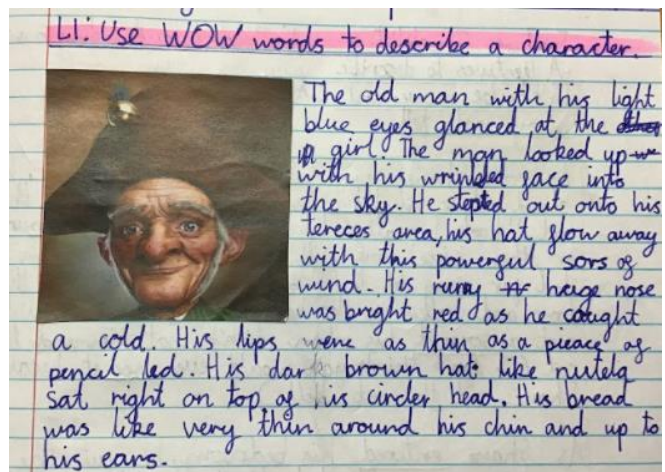 LI: Use WOW words to describe a character.
The old man with his light
blue eyes glanced at the
girl. The man looked up
with his wrinkled face into
the sky. He stepted out onto his
tereces area, his hat flow away
with this powerful sors of
wind. His runny huge nose
was bright red as he caught
a cold. His lips were as thin as a pieace of
pencil led. His dark brown hat like nutela
sat right on top of his circler head. His bread
was like very thin around his chin and up to
his ears.